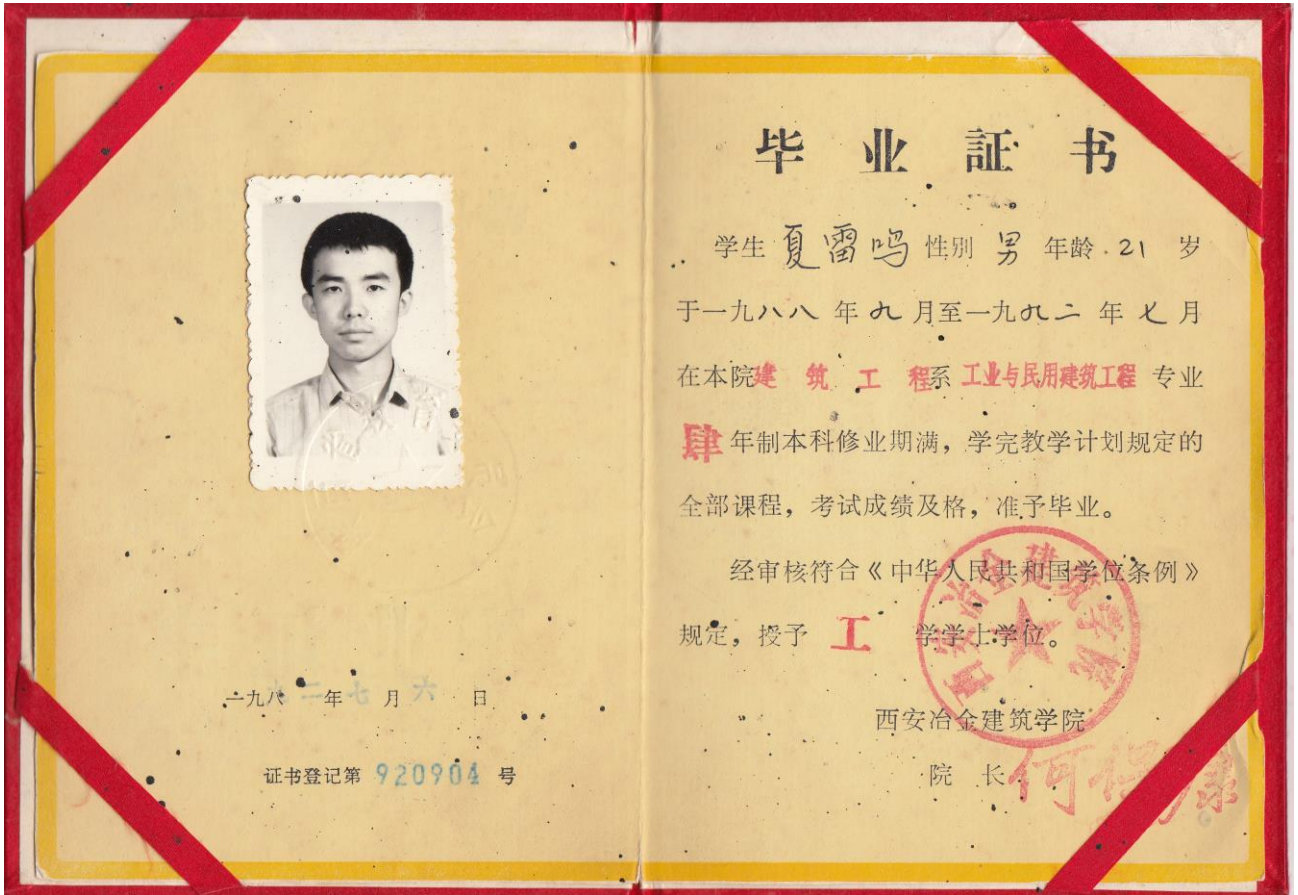 毕业証书
学生 夏雷鸣 性别 男 年龄 21 岁
于一九八八年九月至一九九二年七月
在本院建筑工程系工业与民用建筑工程专业
肆年制本科修业期满，学完教学计划规定的
全部课程，考试成绩及格，准予毕业。
经审核符合《中华人民共和国学位条例》
规定，授予 工 学学士学位。
西安冶金建筑学院
院长
西安冶金建筑学院
一九八 二 年 七 月 六 日
证书登记第 920904 号